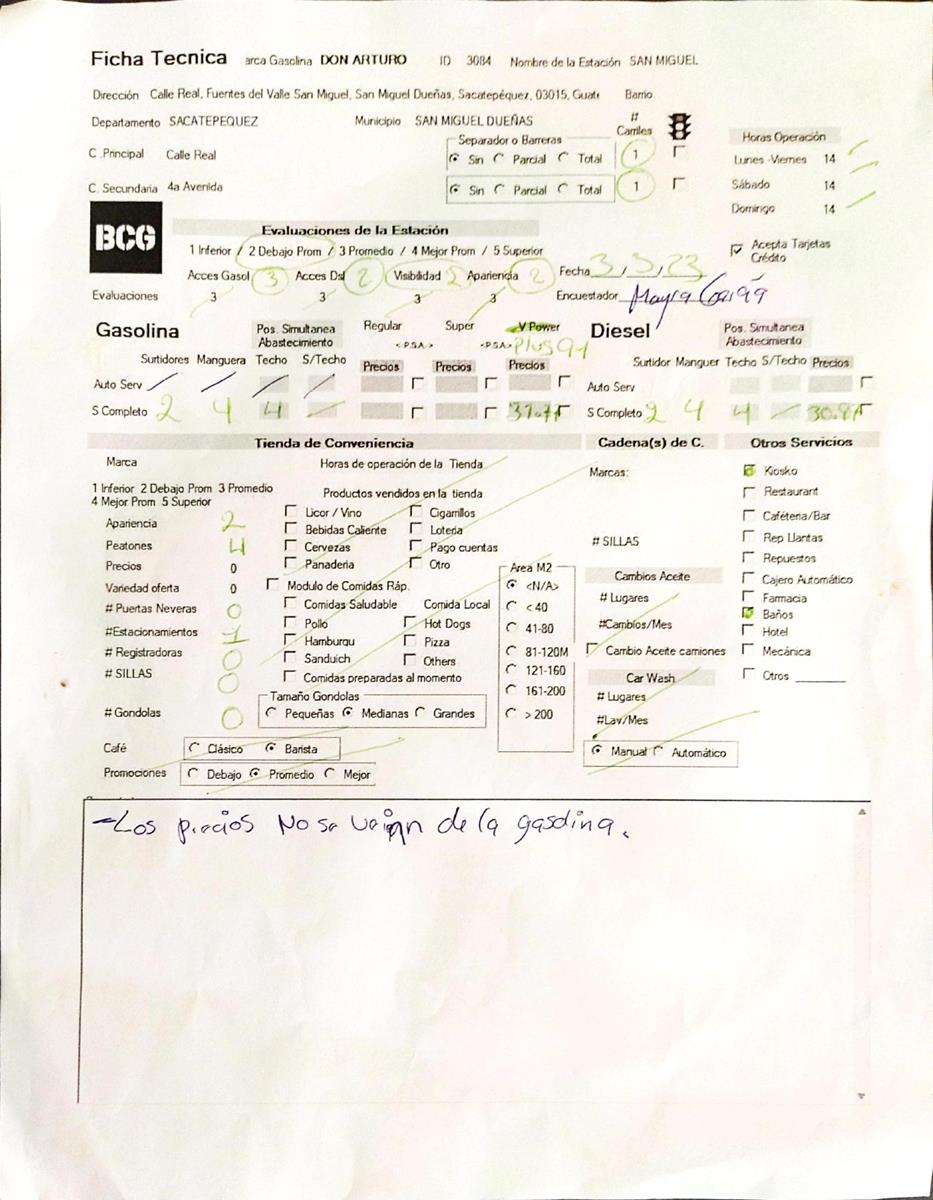 Ficha Tecnica arca Gasolina DON ARTURO ID 3084 Nombre de la Estación SAN MIGUEL
Dirección Calle Real, Fuentes del Valle San Miguel, San Miguel Dueñas, Sacatepéquez, 03015, Guate Barrio
Departamento SACATEPEQUEZ Municipio SAN MIGUEL DUEÑAS # Carriles
C .Principal Calle Real Separador o Barreras Sin Parcial Total 1
C. Secundaria 4a Avenida Sin Parcial Total 1
Horas Operación
Lunes -Viernes 14
Sábado 14
Domingo 14
BCG
Evaluaciones de la Estación
1 Inferior / 2 Debajo Prom / 3 Promedio / 4 Mejor Prom / 5 Superior
Acepta Tarjetas Crédito
Acces Gasol 3 Acces Dsl 2 Visibilidad 2 Apariencia 2 Fecha 3/5/23
Evaluaciones 3 3 3 3 Encuestador Mayra
Gasolina Pos. Simultanea Abastecimiento Regular Super V Power
<-P.S.A.-> <-P.S.A.-> Plus 91
Surtidores Manguera Techo S/Techo Precios Precios Precios
Auto Serv
S Completo 2 4 4
Diesel Pos. Simultanea Abastecimiento
Surtidor Manguer Techo S/Techo Precios
Auto Serv
S Completo 2 4 4
Tienda de Conveniencia
Marca Horas de operación de la Tienda
1 Inferior 2 Debajo Prom 3 Promedio
4 Mejor Prom 5 Superior
Productos vendidos en la tienda
Apariencia 2
Peatones 4
Precios 0
Variedad oferta 0
# Puertas Neveras 0
#Estacionamientos 1
# Registradoras 0
# SILLAS 0
# Gondolas 0
Licor / Vino Cigarrillos
Bebidas Caliente Loteria
Cervezas Pago cuentas
Panaderia Otro
Modulo de Comidas Ráp.
Comidas Saludable Comida Local
Pollo Hot Dogs
Hamburgu Pizza
Sanduich Others
Comidas preparadas al momento
Tamaño Gondolas
Pequeñas Medianas Grandes
Café Clásico Barista
Promociones Debajo Promedio Mejor
Area M2
<N/A>
< 40
41-80
81-120M
121-160
161-200
> 200
Cadena(s) de C.
Marcas:
# SILLAS
Cambios Aceite
# Lugares
#Cambios/Mes
Cambio Aceite camiones
Car Wash
# Lugares
#Lav/Mes
Manual Automático
Otros Servicios
Kiosko
Restaurant
Caféteria/Bar
Rep Llantas
Repuestos
Cajero Automático
Farmacia
Baños
Hotel
Mecánica
Otros
-Los precios No se de la gasolina.